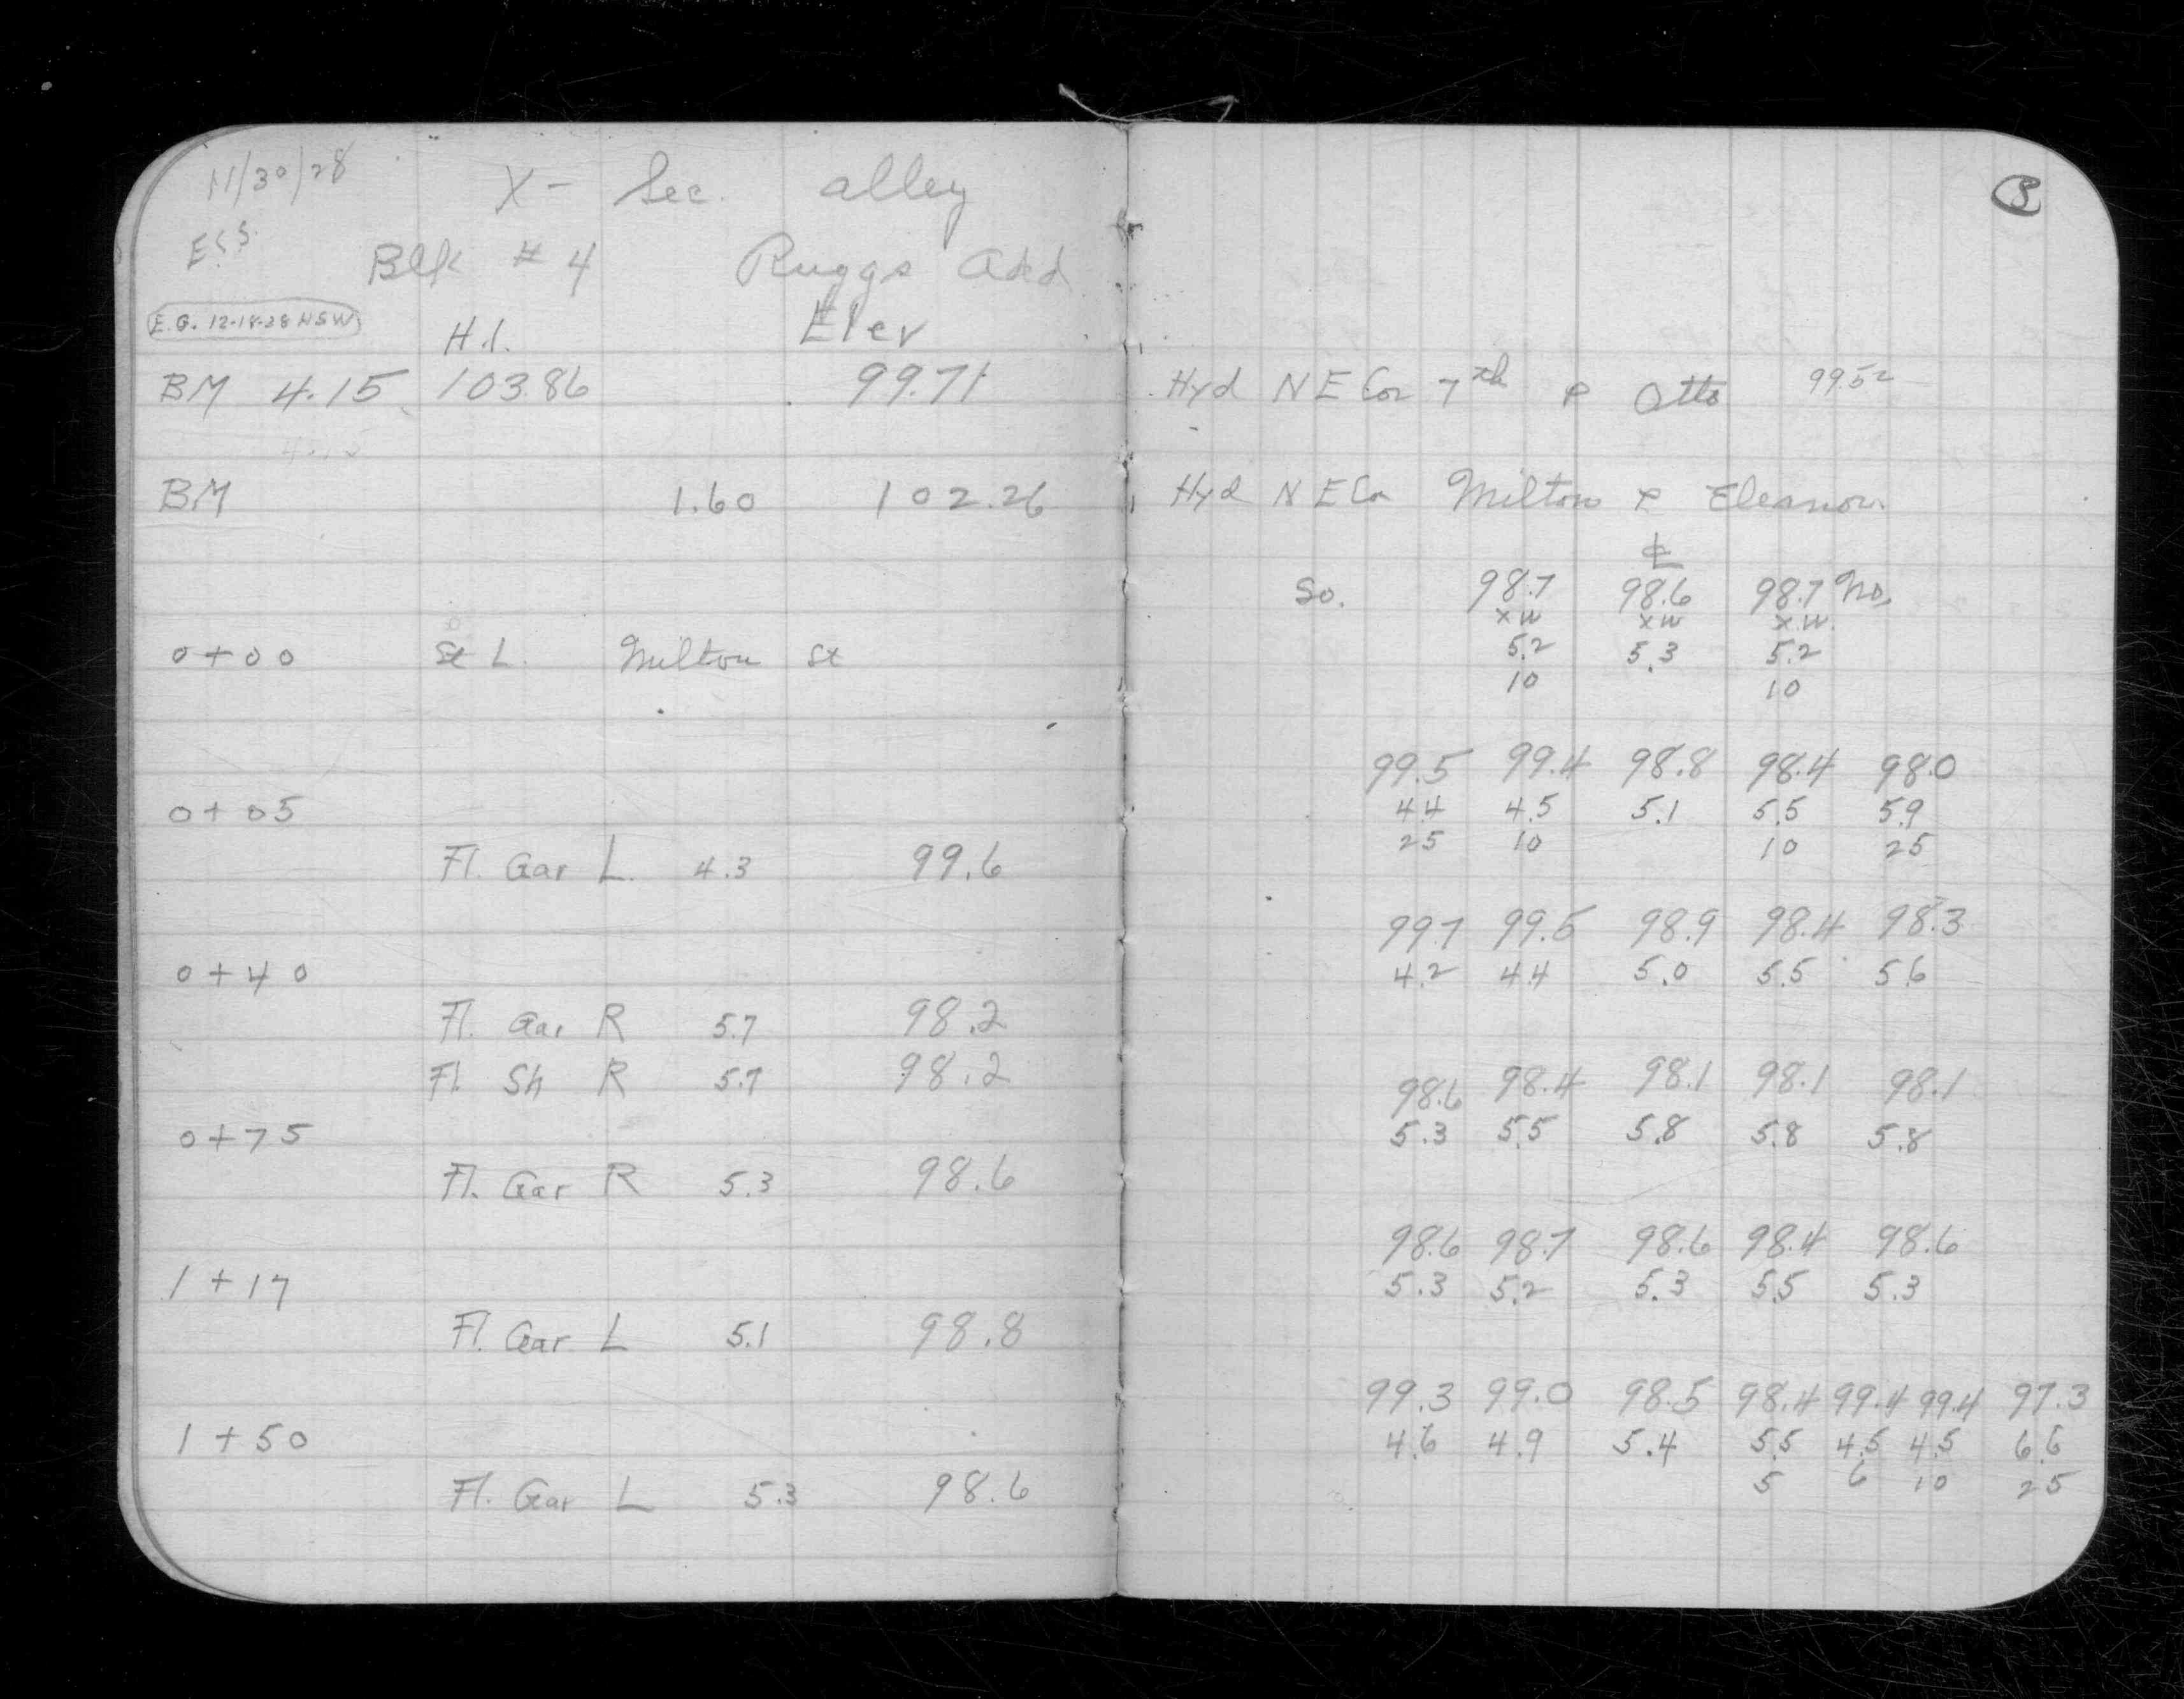 11/30/28 X- Sec. alley
E.S.S.
Blk # 4 Ruggs Add
E.G. 12-18-28 H.S.W.
H.I. Elev
BM 4.15 103.86 99.71
BM 1.60 102.26
0+00 St L. Milton St
0+05
Fl. Gar L. 4.3 99.6
0+40
Fl. Gar R 5.7 98.2
Fl. Sh R 5.7 98.2
0+75
Fl. Gar R 5.3 98.6
1+17
Fl. Gar. L 5.1 98.8
1+50
Fl. Gar L 5.3 98.6
3
Hyd N E Cor 7th & Otto 99.52
Hyd N E Cor Milton & Eleanor.
℄
So. 98.7 98.6 98.7 No.
xw xw x.w.
5.2 5.3 5.2
10 10
99.5 99.4 98.8 98.4 98.0
4.4 4.5 5.1 5.5 5.9
25 10 10 25
99.7 99.5 98.9 98.4 98.3
4.2 4.4 5.0 5.5 5.6
98.6 98.4 98.1 98.1 98.1
5.3 5.5 5.8 5.8 5.8
98.6 98.7 98.6 98.4 98.6
5.3 5.2 5.3 5.5 5.3
99.3 99.0 98.5 98.4 99.4 99.4 97.3
4.6 4.9 5.4 5.5 4.5 4.5 6.6
5 6 10 25